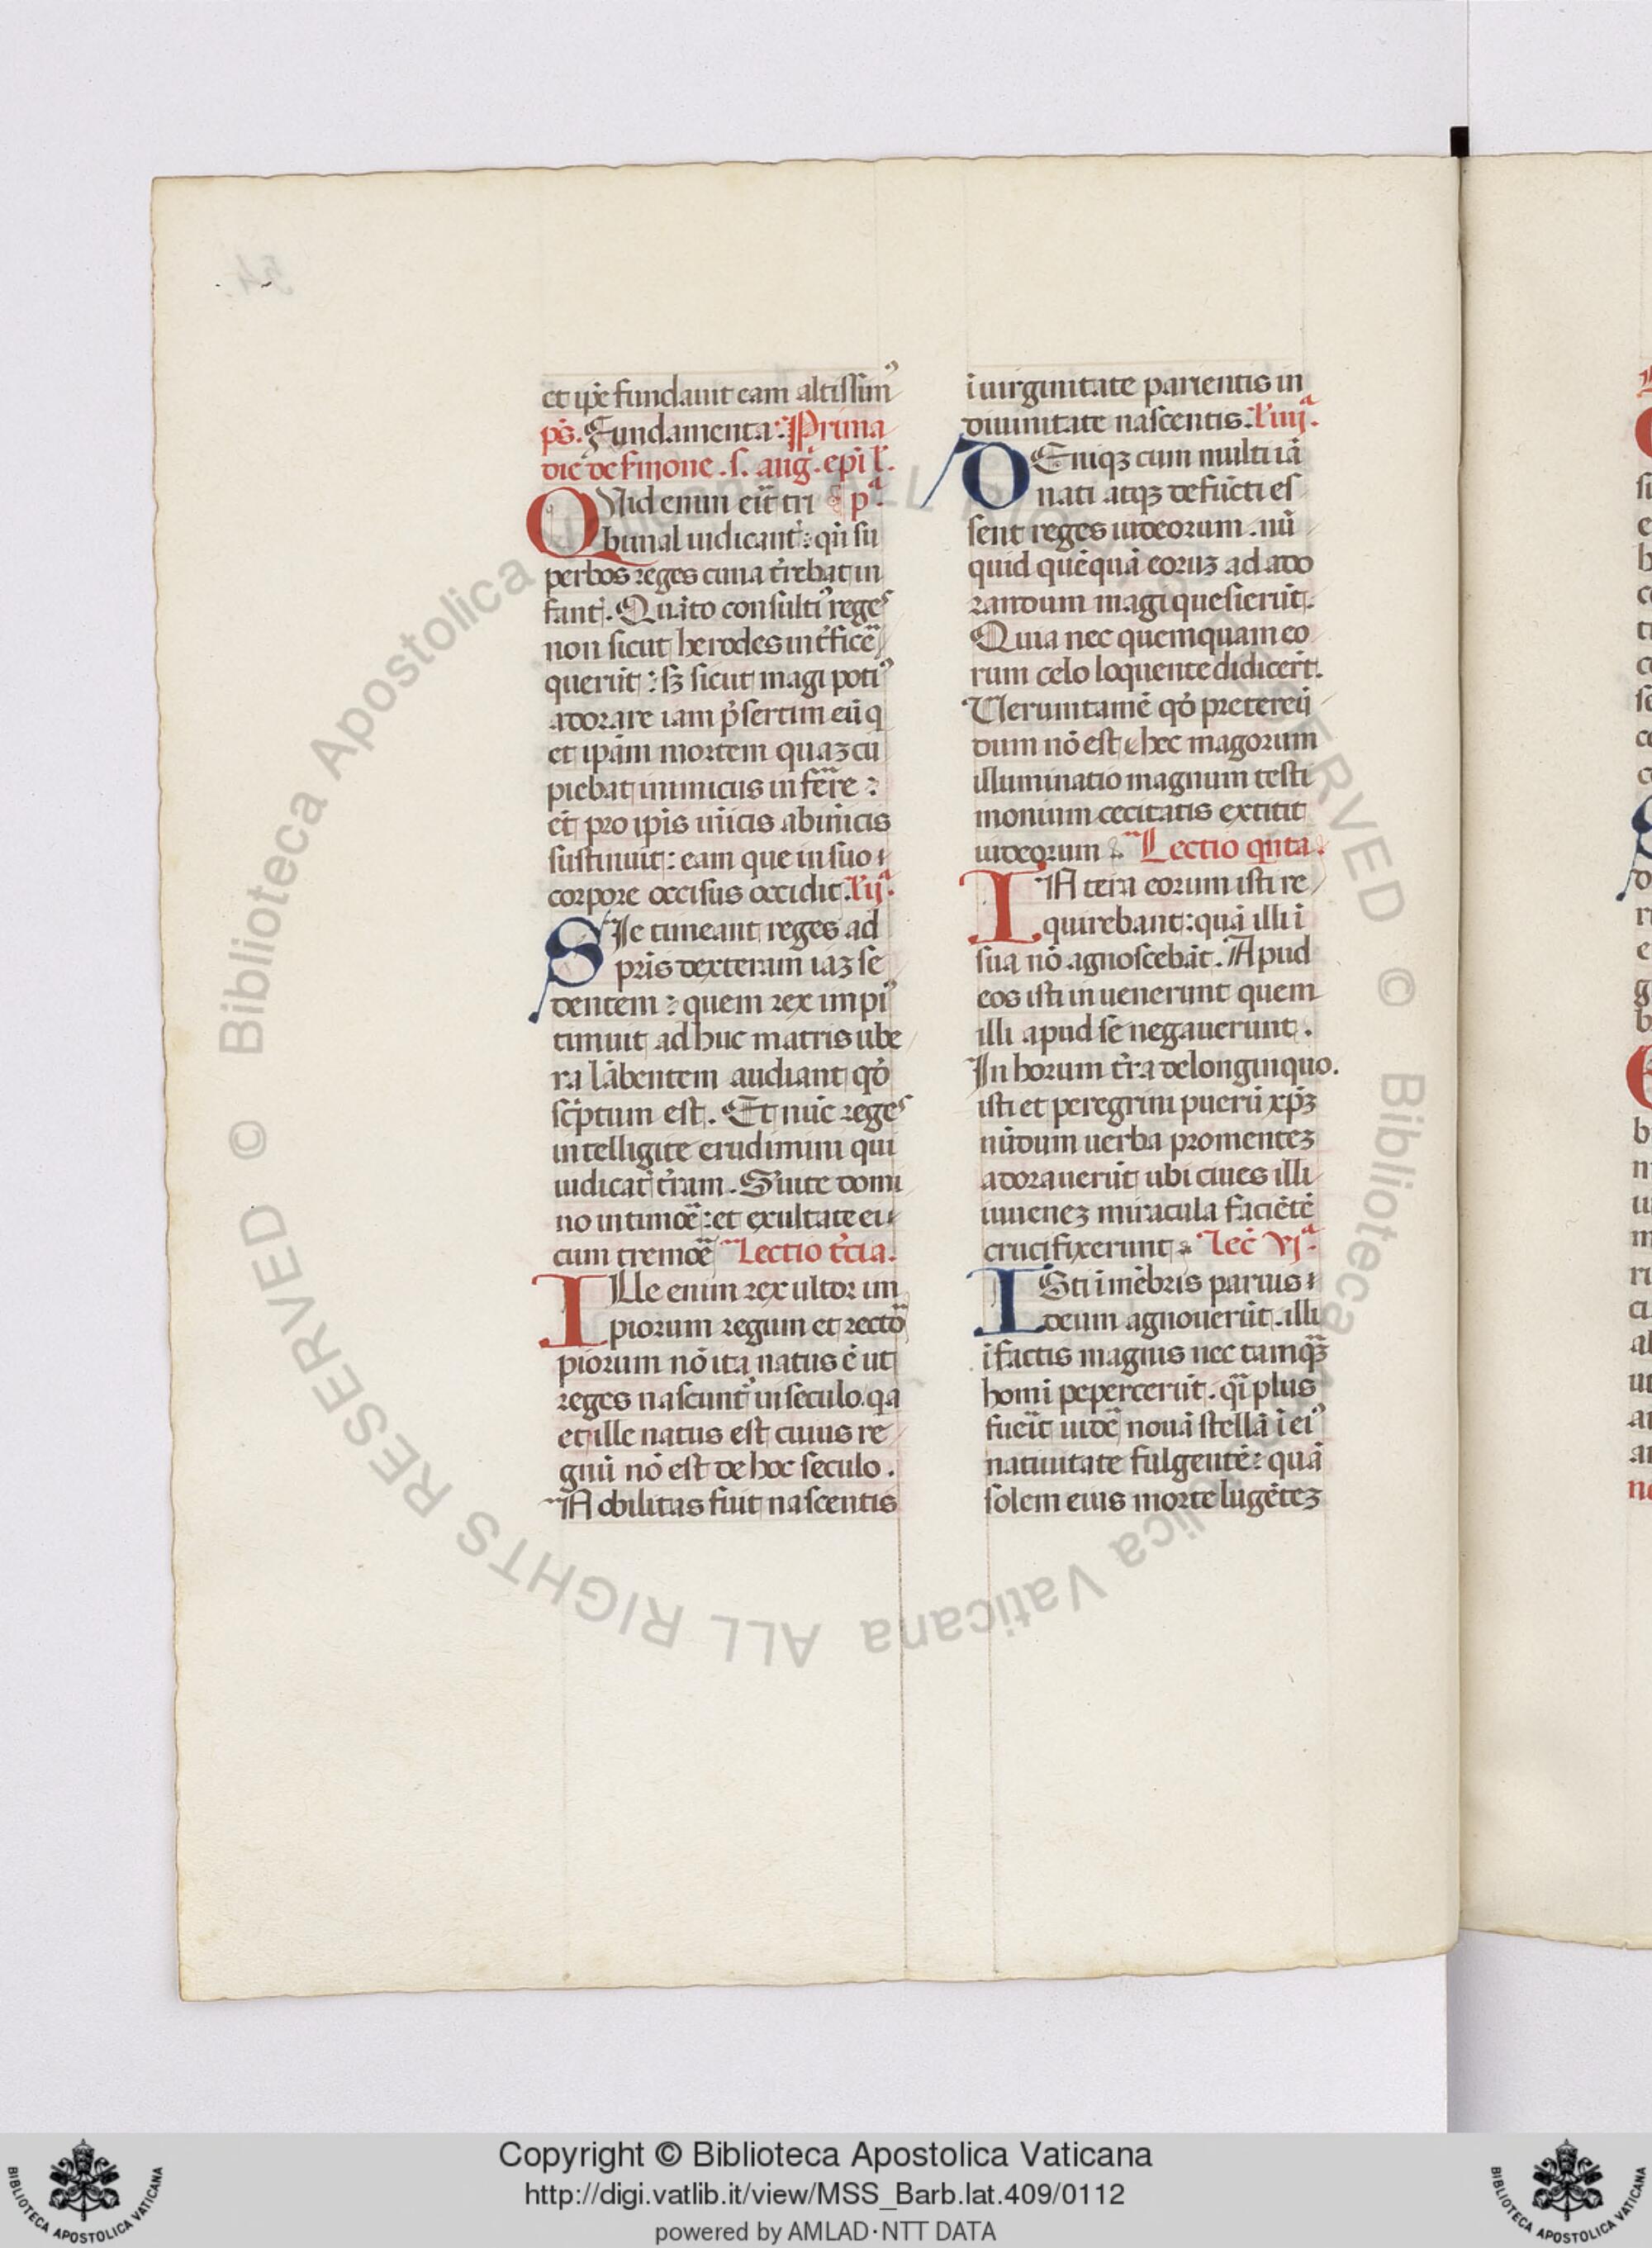 et ip̄e fundauit eam altissim᷒
pš. Fundamenta. Prima
die de s̄mone. s. aug. epī l.
QVid enim eīt tri pª
bunal iudicant̄: qn̄ su
perbos reges cuna t̄rebat in
fanti. Quāto consulti᷒ reges
non sicut herodes int̄ficē
querūt: sꝫ sicut magi poti᷒
adorare iam p̄sertim eū q
et ip̄am mortem quaꝫ cu
piebat inimicus inferre:
et pro ip̄is inīcis ab inīcis
sustinuit: eam que in suo
corpore occisus occidit. l'ijª.
SIc timeant reges ad
pr̄is dexteram iaꝫ se
dentem: quem rex impi᷒
timuit adhuc matris ube
ra lābentem audiant qđ
sc̄ptum est. Et nūc reges
intelligite erudimini qui
iudicat̄ t̄ram. Suite domi
no in timoē: et exultate ei
cum tremoē Lectio t̄cia.
ILle enim rex ultor im
piorum regum et recto
piorum nō ita natus ē ut
reges nascunt̄ in seculo. qa
et ille natus est cuius re
gnū nō est de hoc seculo.
Nobilitas fuit nascentis
ī uirginitate parientis in
diuinitate nascentis. l'iiijª.
DEniqꝫ cum multi iā
nati atqꝫ defūcti es
sent reges iudeorum. nū
quid quēquā eoruꝫ ad ado
randum magi quesierūt.
Quia nec quemquam eo
rum celo loquente didicerūt.
Verumtamē qđ pretereū
dum nō est hec magorum
illuminatio magnum testi
monium cecitatis extitit
iudeorum Lectio qnta.
IN terra eorum isti re
quirebant: quā illi ī
sua nō agnoscebāt. Apud
eos isti inuenerunt quem
illi apud se negauerunt.
In horum t̄ra de longinquo.
isti et peregrini puerū xp̄ꝫ
nūdum uerba promenteꝫ
adorauerūt ubi ciues illi
iuueneꝫ miracula faciētē
crucifixerunt Lec̄ vjª.
ISti ī mēbris paruis
deum agnouerūt. illi
ī factis magnis nec tamqꝫ
homī pepercerūt. qi plus
fueīt uidē nouā stellā ī ei᷒
natiuitate fulgentē: quā
solem eius morte lugēteꝫ
Copyright © Biblioteca Apostolica Vaticana
http://digi.vatlib.it/view/MSS_Barb.lat.409/0112
powered by AMLAD·NTT DATA